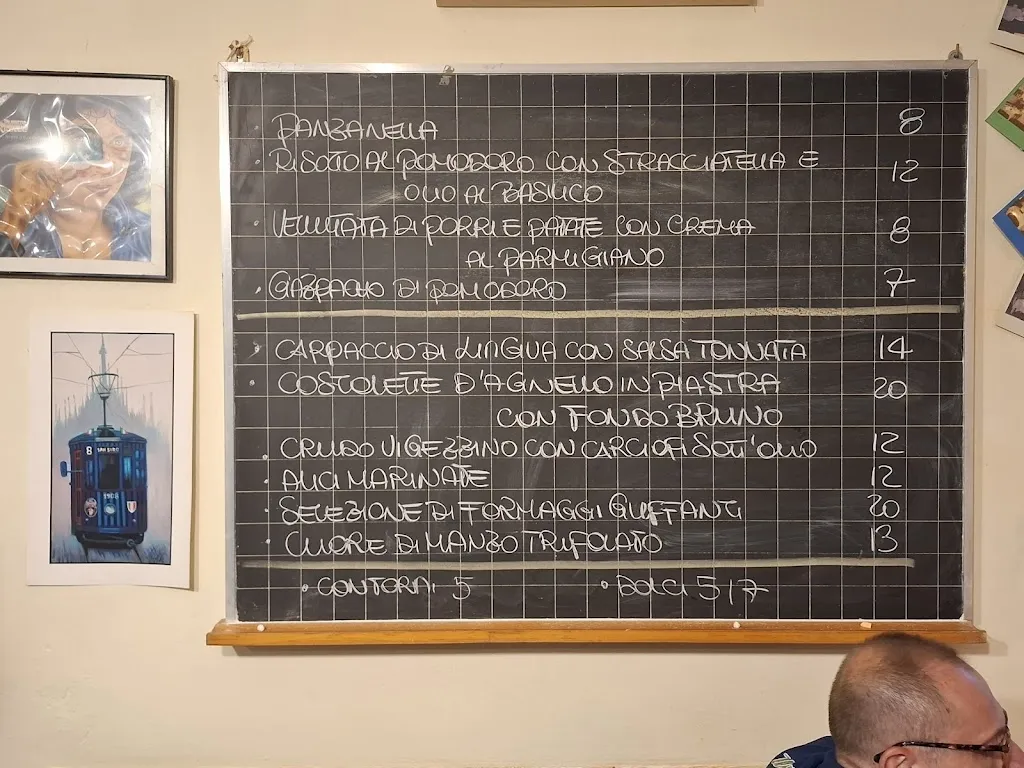 · PANZANELLA 8
· RISOTO AL POMODORO CON STRACCIATELLA E 12
OLIO AL BASILICO
· VELLUTATA DI PORRI E PATATE CON CREMA 8
AL PARMIGIANO
· GAZPACHO DI POMODORO 7
· CARPACCIO DI LINGUA CON SALSA TONNATA 14
· COSTOLETTE D'AGNELLO IN PIASTRA 20
CON FONDO BRUNO
· CRUDO VIGEZZINO CON CARCIOFI SOTT'OLIO 12
· ALICI MARINATE 12
· SELEZIONE DI FORMAGGI GUFFANTI 20
· CUORE DI MANZO TRIFOLATO 13
· CONTORNI 5 · DOLCI 5/7
8 SAN SIRO
1908